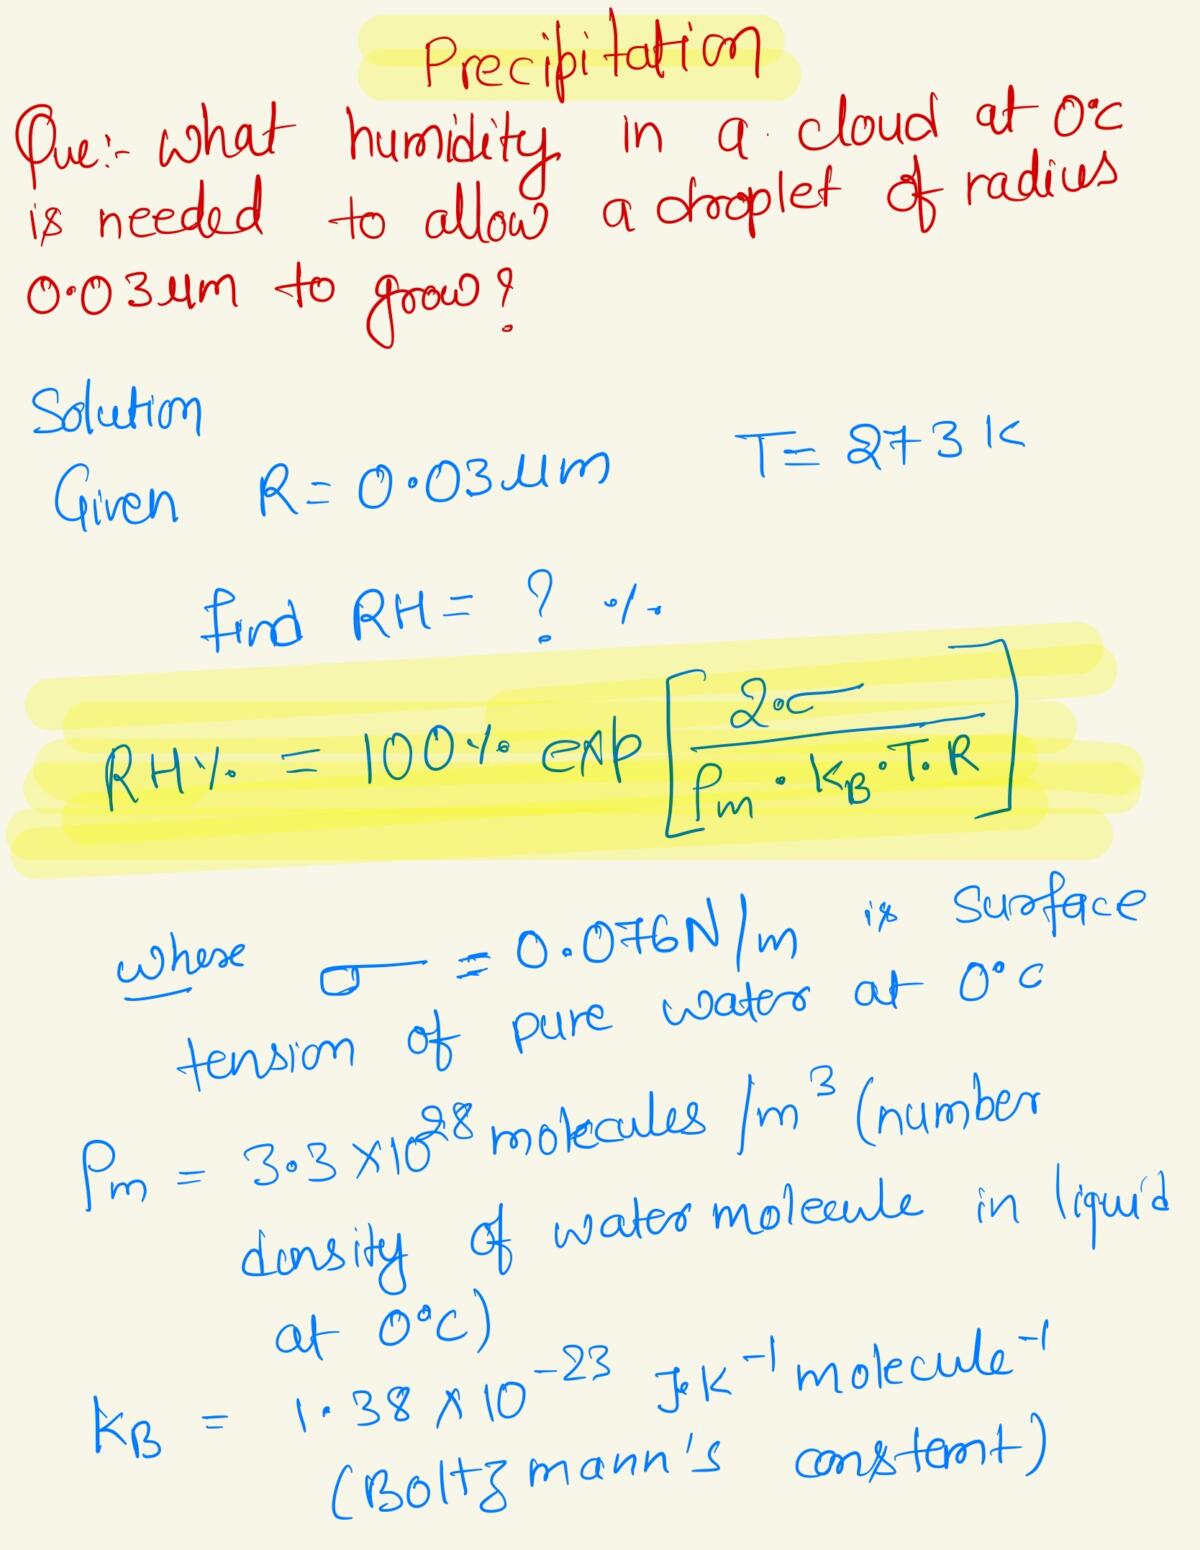 Precipitation
Que:- what humidity in a cloud at 0°C
is needed to allow a droplet of radius
0.03 μm to grow?
Solution
Given R = 0.03 μm T = 273 K
find RH = ? %
RH% = 100% exp [2·σ / ρm · KB · T · R]
where σ = 0.076 N/m is surface
tension of pure water at 0°C
ρm = 3.3 × 10^28 molecules /m³ (number
density of water molecule in liquid
at 0°C)
KB = 1.38 × 10^-23 J·K^-1 molecule^-1
(Boltzmann's constant)